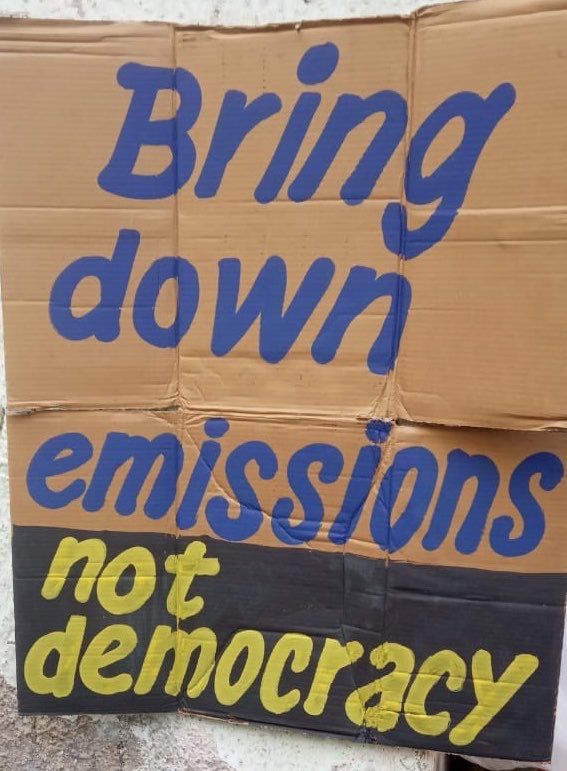 Bring
down
emissions
not
democracy